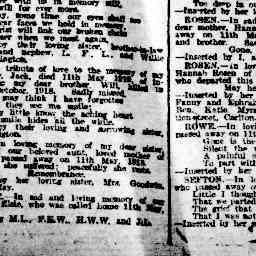 with us in memory still,
will for ever more.
some time our eyes shall see
face we held in memory,
Christ will link our broken chain
over when we meet again.
by their loving sister, brother-in-law
and nephew, L. F. L. and Willie
tribute of love to the memory of my
Jack, died 11th May, 1918.
my dear brother, Will, killed in
October, 1918. Sadly missed.
may think I have forgotten
they see me smile;
little know the aching heart
smile hides all the while.
by their loving and sorrowing sister,
loving memory of my dear sister,
our beloved aunt, loved mother of
passed away on 11th May, 1918.
she suffered; peacefully she rests.
Remembrance.
by her loving sister, Mrs. Goodwin,
In sad and loving memory of our
Elsie, who was called home 11th May,
M.L., F.E.W., H.W.W. and
The deep in our
—Inserted by her l
ROSEN.—In sad
dear mother, Hanna
away on 11th May
and brother. Sad
Gone
—Inserted by I. a
ROSEN.—In lo
Hannah Rosen of
who departed this
May
—Inserted by her
Fanny and Ephra
Ben, Katie, Myra
ton-street, Carlton.
ROWE.—In loving
away on 11th
Gone is the
Silent the
A painful
To part with
—Inserted by her
SEFTON.—In l
who passed away o
Little I thought
That we parted
The grief that
That I was not
—Inserted by her